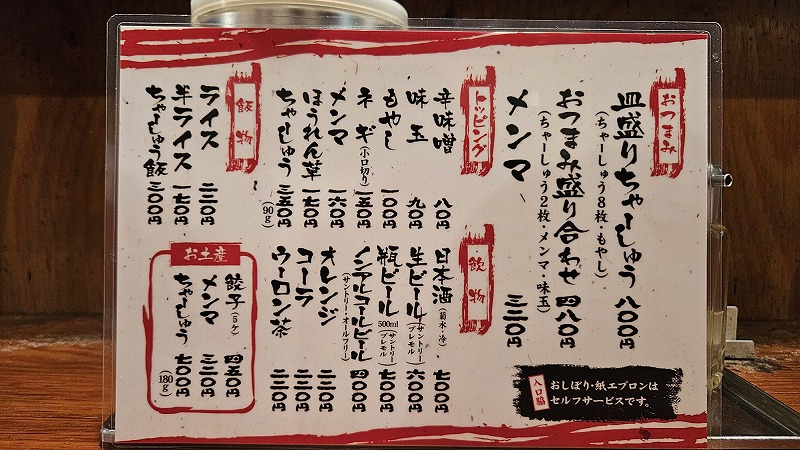 おつまみ
皿盛りちゃーしゅう 八〇〇円
(ちゃーしゅう8枚・もやし)
おつまみ盛り合わせ 四八〇円
(ちゃーしゅう2枚・メンマ・味玉)
メンマ 三二〇円
トッピング
辛味噌 八〇円
味玉 九〇円
もやし 一〇〇円
ネギ(小口切り) 一五〇円
メンマ 一六〇円
ほうれん草 一七〇円
ちゃーしゅう 三五〇円
(90g)
飯物
ライス 二二〇円
半ライス 一七〇円
ちゃーしゅう飯 三〇〇円
飲物
日本酒(菊水・冷) 七〇〇円
生ビール(サントリープレモル) 六〇〇円
瓶ビール500ml(サントリープレモル) 七〇〇円
ノンアルコールビール 四〇〇円
(サントリー・オールフリー)
オレンジ 二二〇円
コーラ 二二〇円
ウーロン茶 二二〇円
お土産
餃子(5ケ) 四五〇円
メンマ 三二〇円
ちゃーしゅう 七〇〇円
(180g)
入口脇
おしぼり・紙エプロンは
セルフサービスです。